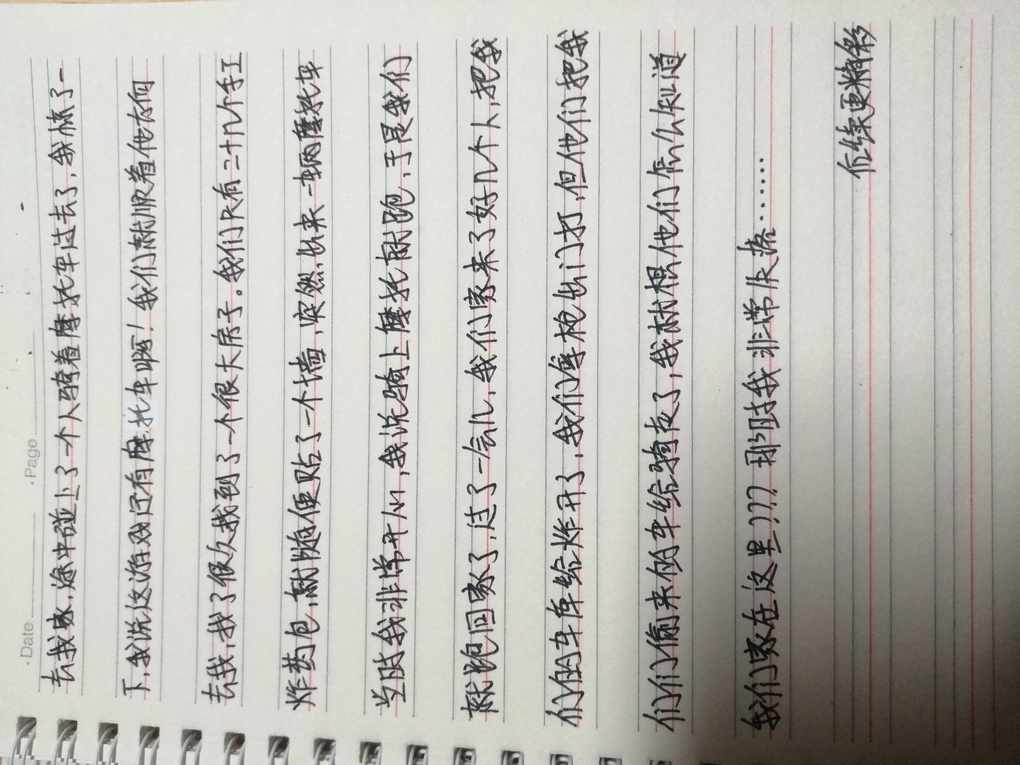 ·Date ·Page
去找家，途中碰上了一个人骑着摩托车过去了，我愣了一
下，我说这游戏还有摩托车啊！我们就顺着他方向
去找，找了很久找到了一个很大房子。我们只有二十几个手工
炸药包，就随便贴了一个墙，突然出来一辆摩托车
当时我非常开心，我说骑上摩托就跑，于是我们
就跑回家了，过了一会儿，我们家来了好几个人，把我
们的车库给炸开了，我们拿枪出门打，但他们把我
们们偷来的车给骑夜了，我就想他们怎么知道
我们家在这里？？？那时我非常失落……
后续更精彩